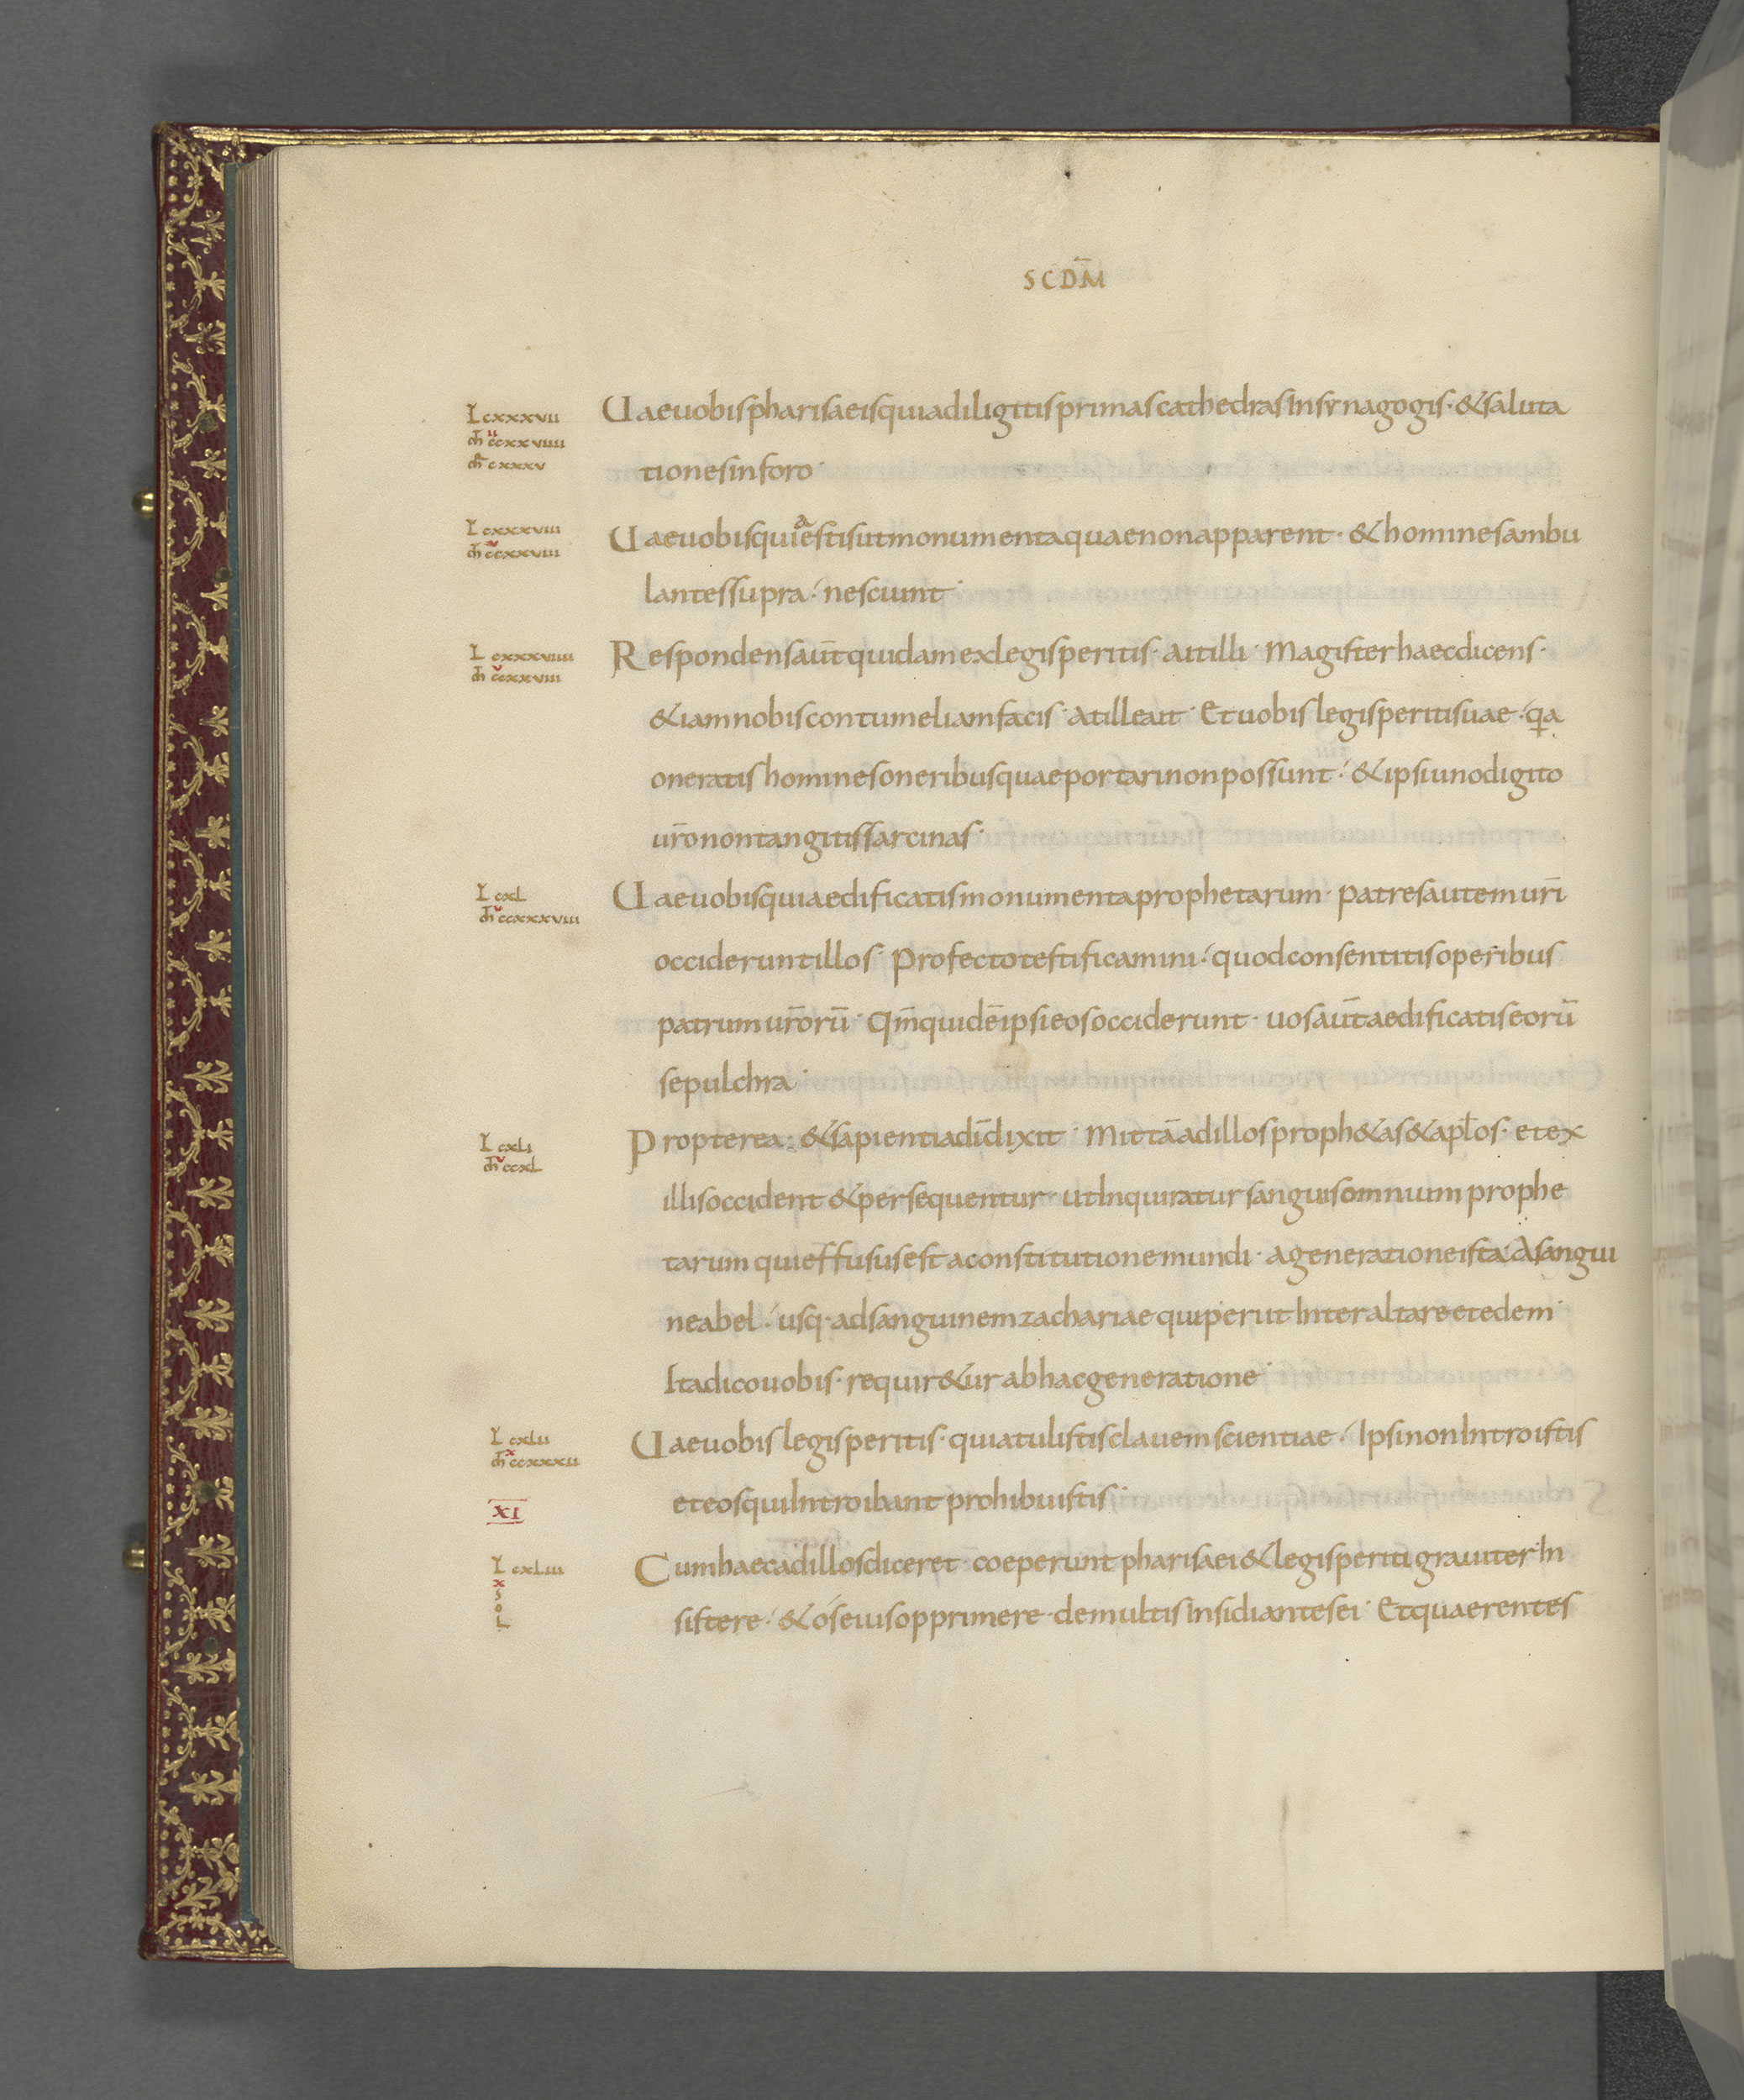 SCDM̅
L cxxxvii
Uae uobis pharisaeis quia diligitis primas cathedras in synagogis · & saluta
m̅ ccxxviiii
ii
mr̅ cxxxv
tiones in foro ·
L cxxxviii
Uae uobis quiaestis ut monumenta quae non apparent · & homines ambu
m̅ ccxxviii
v
lantes supra · nesciunt ·
L cxxxviiii
Respondens aut̅ quidam ex legis peritis · ait illi · Magister haec dicens ·
m̅ ccxxviii
v
& iam nobis contumeliam facis · at ille ait · Et uobis legis peritis uae · qa
oneratis homines oneribus quae portari non possunt · & ipsi uno digito
ur̅o non tangitis sarcinas ·
L cxl
Uae uobis qui aedificatis monumenta prophetarum · patres autem ur̅i
m̅ ccxxxviii
v
occiderunt illos · Profecto testificamini · quod consentitis operibus
patrum ur̅oru̅ · Qm̅ quide̅ ipsi eos occiderunt · uos aut̅ aedificatis eoru̅
sepulchra ·
L cxli
Propterea · & sapientia di̅ dixit · Mitta̅ ad illos proph&as & apl̅os · et ex
m̅ ccxl
v
illis occident & persequentur · ut Inquiratur sanguis omnium prophe
tarum qui effusus est a constitutione mundi · a generatione ista · A sangui
ne abel · usq · ad sanguinem zachariae qui periit Inter altare et edem ·
Ita dico uobis · requir&ur ab hac generatione ·
L cxlii
Uae uobis legis peritis · quia tulistis clauem scientiae · Ipsi non Introistis
m̅ ccxxxii
x
et eos qui Introibant prohibuistis ·
XI
L cxliii
Cum haec ad illos diceret · coeperunt pharisaei & legis periti grauiter In
x
s
o
L
sistere · & ós eius opprimere · de multis Insidiantes ei · Et quaerentes